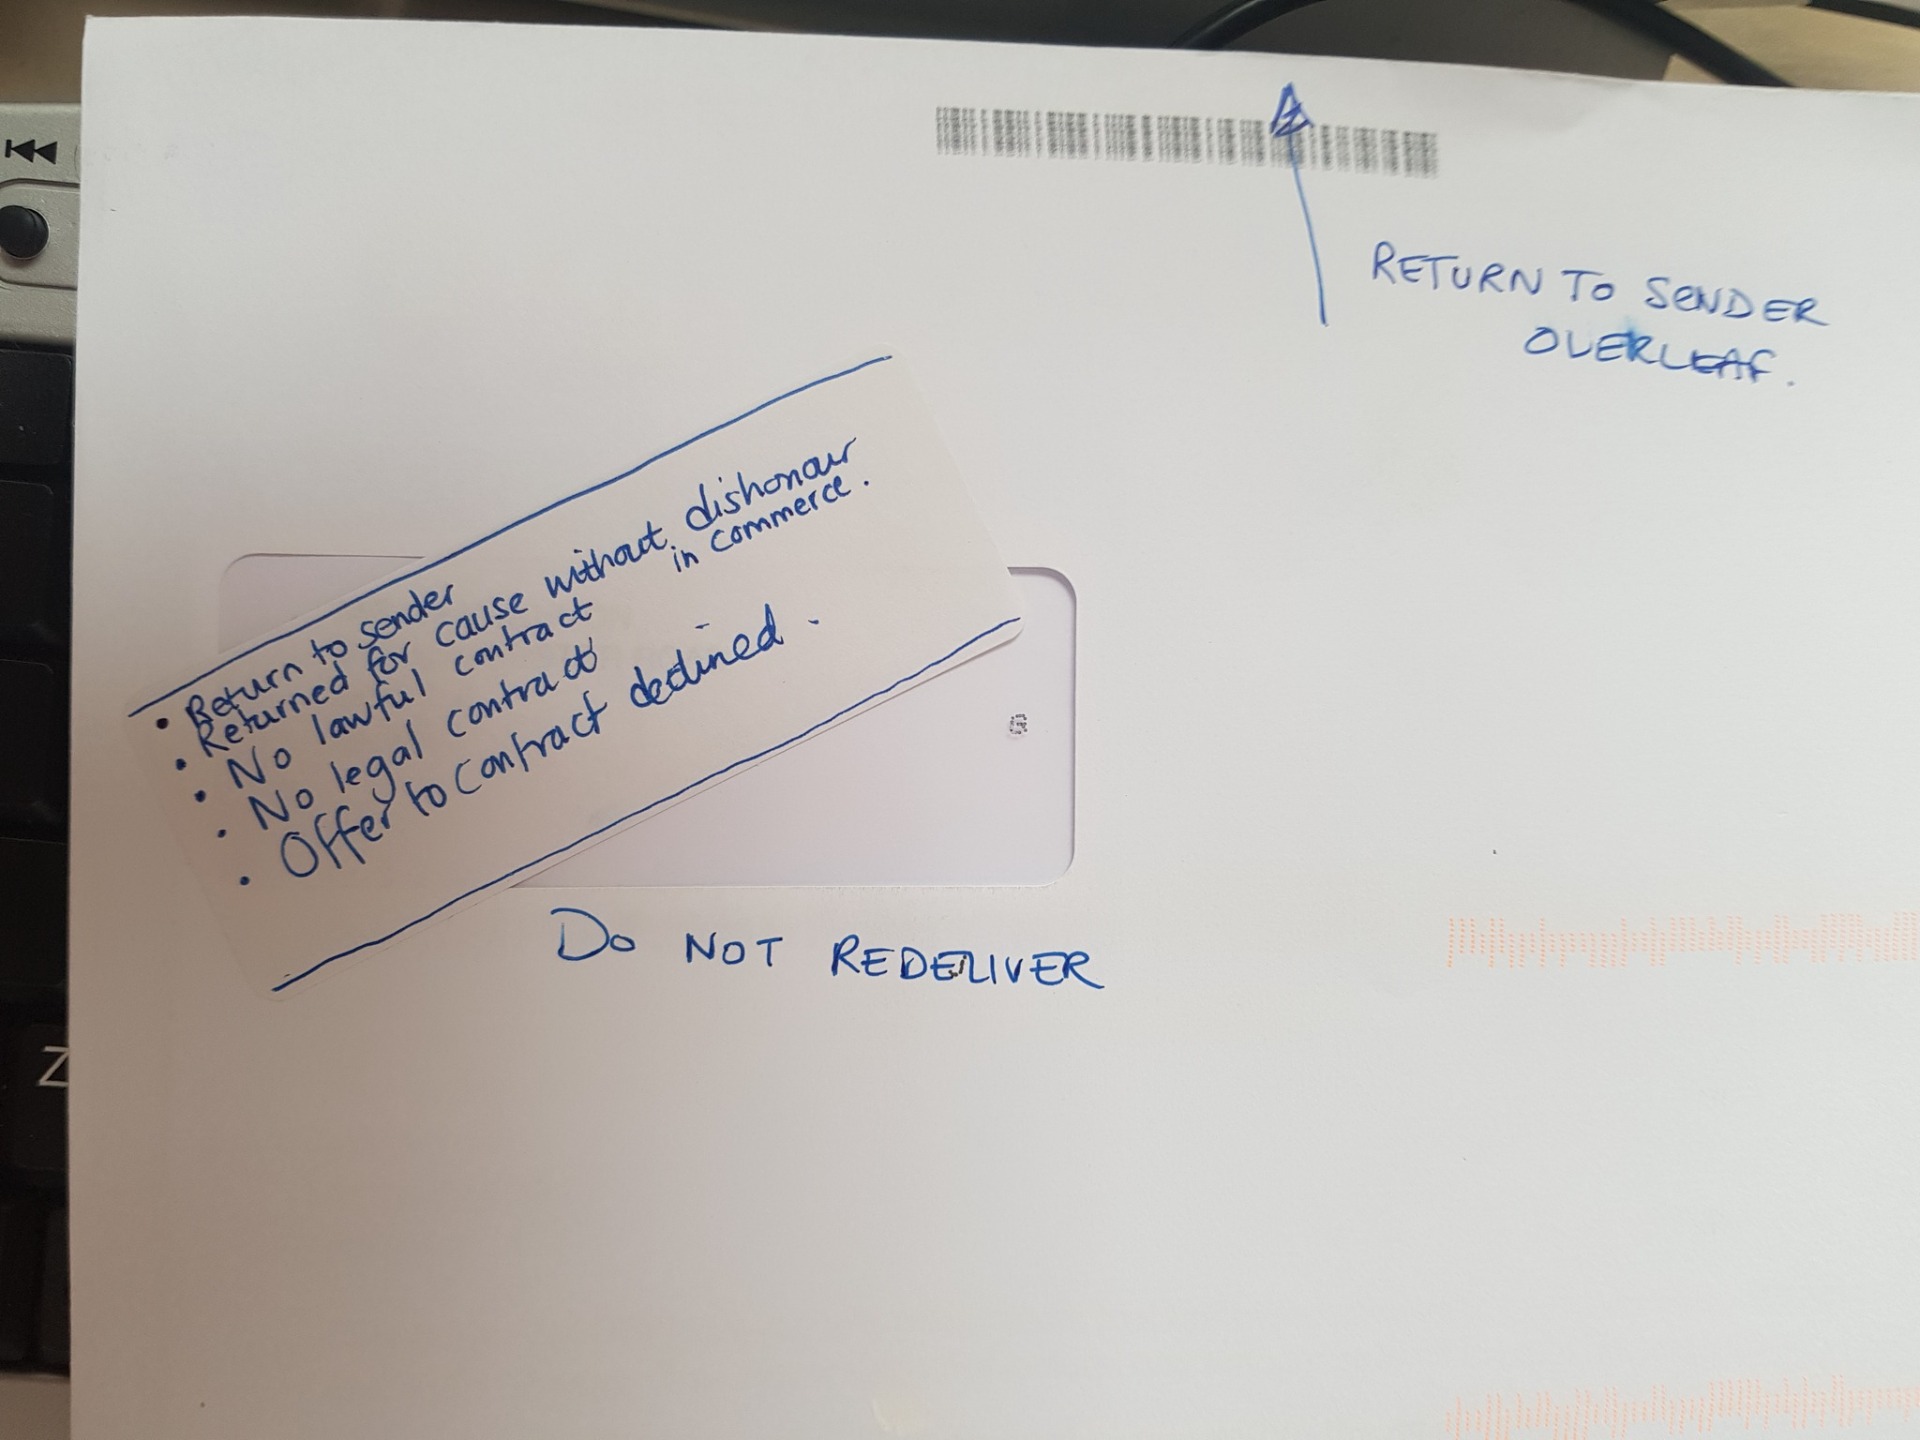 RETURN TO SENDER
OVERLEAF.
• Return to sender
• Returned for cause without dishonour
in commerce.
• No lawful contract
• No legal contract
• Offer to contract declined.
G
DO NOT REDELIVER
Z